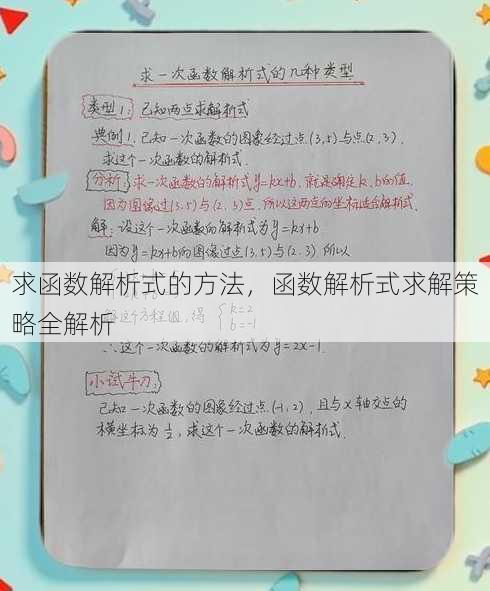 求一次函数解析式的几种类型
类型1：已知两点求解析式
典例1. 已知一次函数的图象经过点(3,5)与点(2,3),
求这个一次函数的解析式.
分析：求一次函数的解析式y=kx+b, 就是确定k、b的值.
因为图像过(3,5)与(2,3)点, 所以这两点的坐标适合解析式.
解：设这个一次函数的解析式为y=kx+b
因为y=kx+b的图像过点(3,5)与(2,3)所以
求函数解析式的方法，函数解析式求解策
略全解析
这个方程组, 得 { k=2
b=-1
∴这个一次函数的解析式为y=2x-1.
小试牛刀：
已知一次函数的图象经过点(-1,2), 且与x轴交点的
横坐标为1/2, 求这个一次函数的解析式.